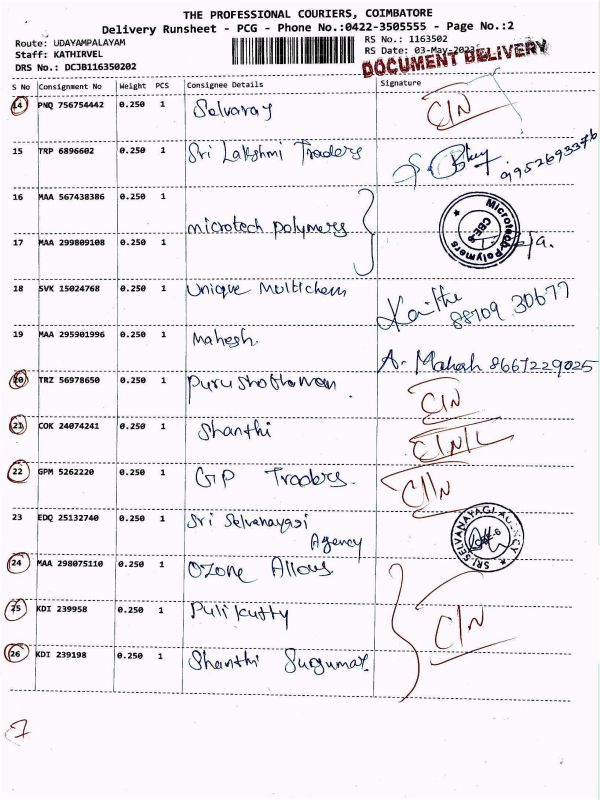 THE PROFESSIONAL COURIERS, COIMBATORE
Delivery Runsheet - PCG - Phone No.:0422-3505555 - Page No.:2
Route: UDAYAMPALAYAM RS No.: 1163502
Staff: KATHIRVEL RS Date: 03-May-2023
DRS No.: DCJB116350202 DOCUMENT DELIVERY
S No Consignment No Weight PCS Consignee Details Signature
14 PNQ 756754442 0.250 1 Selvaray C/N
15 TRP 6896602 0.250 1 Sri Lakshmi Traders 9952693376
16 MAA 567438386 0.250 1
microtech polymers Microtech Polymers CBE-6
17 MAA 299809108 0.250 1
18 SVK 15024768 0.250 1 Unique Multichem 88709 30677
19 MAA 295901996 0.250 1 Mahesh. A. Mahah 8667229025
20 TRZ 56978650 0.250 1 Purushothaman. C/N
21 COK 24074241 0.250 1 Shanthi C/N/L
22 GPM 5262220 0.250 1 GP Traders. C/N
23 EDQ 25132740 0.250 1 Sri Selvanayagi SRI SELVANAYAGI AGENCY
Agency
24 MAA 298075110 0.250 1 Ozone Alloys
25 KDI 239958 0.250 1 Pulikutty C/N
26 KDI 239198 0.250 1 Shanthi Sugumar
7